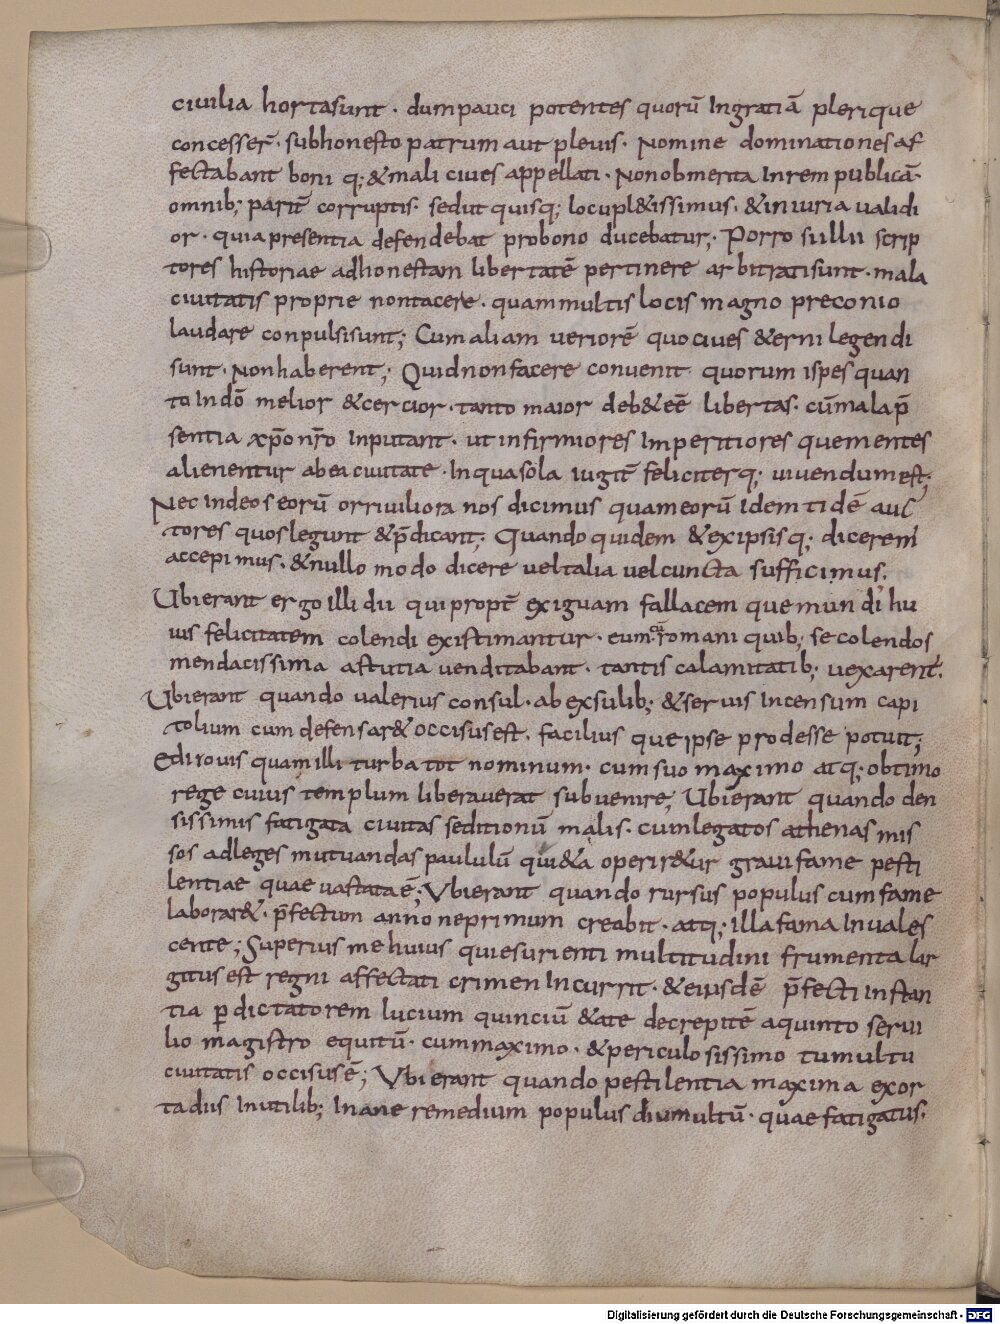 ciuilia hortasunt · dumpauci potentes quorū Ingratiā plerique
concesser̄ · subhonesto patrum aut pleuis · Nomine dominationes af
fectabant boni q; & mali ciues appellati · Nonobmerita Inrem publicā ·
omnib; parit̄ corruptis · sedut quisq; locupl&issimus · & iniuria ualidi
or · quia presentia defendebat probono ducebatur; Porro sullii scrip
tores historiae adhonestam libertatē pertinere arbitratisunt · mala
ciuitatis proprie nontacere · quammultis locis magno preconio
laudare conpulsisunt; Cum aliam ueriorē quo ciues &erni legendi
sunt · Nonhaberent; Quidnonfacere conuenit quorum ispes quan
to Indō melior & cercior · tanto maior deb& eē libertas · cūmala p̄
sentia xp̄o nr̄o Inputant · ut infirmiores Imperitiores que mentes
alienentur abea ciuitate · Inquasola iugit̄ feliciterq; uiuendum est;
Nec Indeos eorū orriuiliora nos dicimus quam eorū Idem tidē auc
tores quoslegunt & p̄dicant; Quando quidem & exipsisq; dicerem
accepimus · & nullo modo dicere uel talia uel cuncta sufficimus.
Ubierant ergo illi dii qui propt̄ exiguam fallacem que mundi hu
ius felicitatem colendi existimantur · cum romani quib; se colendos
mendacissima astutia uenditabant · tantis calamitatib; uexarent.
Ubierant quando ualerius consul · ab exsulib; & seruis Incensum capi
tolium cum defensar& occisus est · facilius que ipse prodesse potuit;
Edi iouis quam illi turba tot nominum · cum suo maximo atq; obtimo
rege cuius templum liberauerat subuenire; Ubierant quando den
sissimis fatigata ciuitas seditionū malis · cumlegatos athenas mis
sos adleges mutuandas paululū qui&a operir&ur graui fame pesti
lentiae quae uastata ē; Ubierant quando rursus populus cum fame
laborar& · p̄fectum anno ne primum creabit · atq; illa fama Inuales
cente; Superius mehuius qui esurienti multitudini frumenta lar
gitus est regni affectati crimen Incurrit · & eiusdē p̄fecti instan
tia p dictatorem lucium quinciū &ate decrepitē aquinto serui
lio magistro equitū · cum maximo · & periculosissimo tumultu
ciuitatis occisus ē; Ubierant quando pestilentia maxima exor
ta diis Inutilib; Inane remedium populus diu multū · quae fatigatus ·
Digitalisierung gefördert durch die Deutsche Forschungsgemeinschaft - DFG